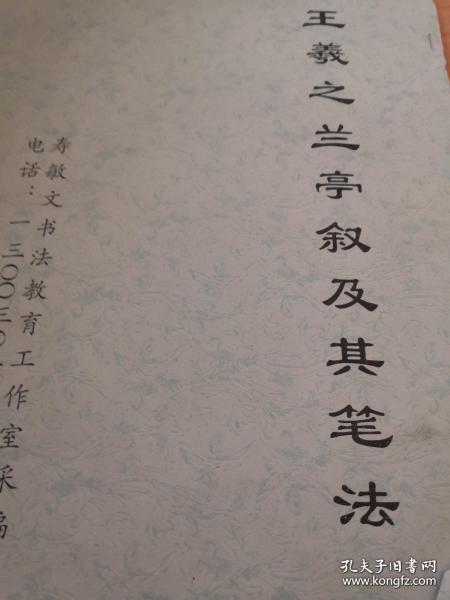 王羲之兰亭叙及其笔法
寿敏文书法教育工作室采编
电话：一三〇〇三〇
孔夫子旧书网
www.kongfz.com